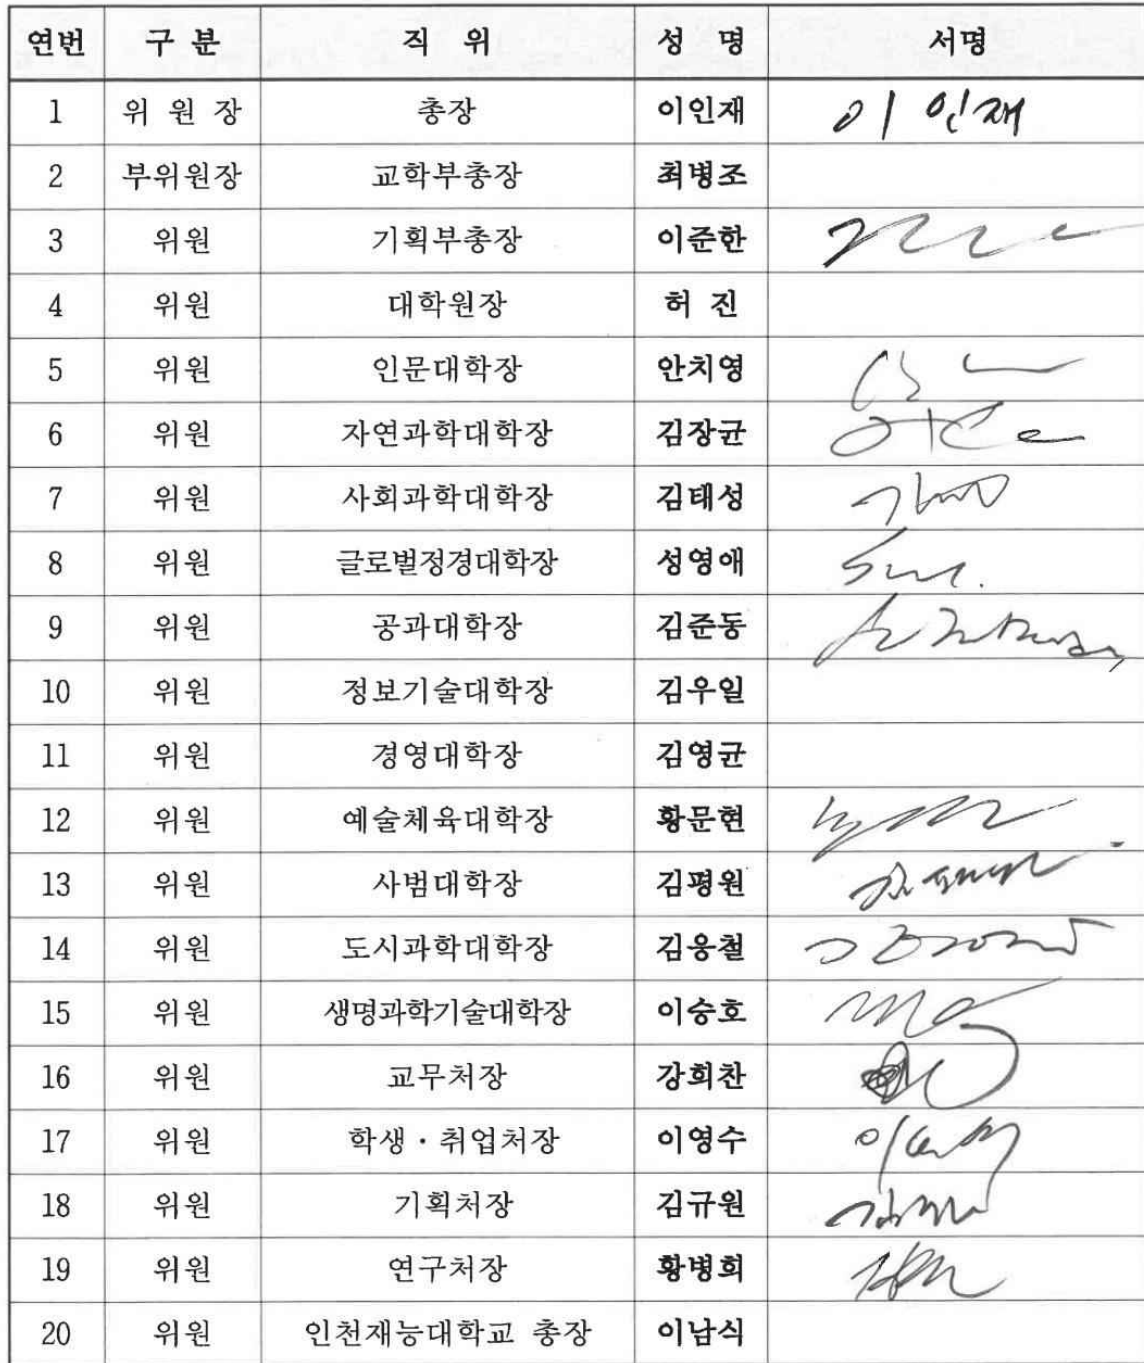 연번 구 분 직 위 성 명 서명
1 위 원 장 총장 이인재 이 인재
2 부위원장 교학부총장 최병조
3 위원 기획부총장 이준한
4 위원 대학원장 허 진
5 위원 인문대학장 안치영
6 위원 자연과학대학장 김장균
7 위원 사회과학대학장 김태성
8 위원 글로벌정경대학장 성영애
9 위원 공과대학장 김준동
10 위원 정보기술대학장 김우일
11 위원 경영대학장 김영균
12 위원 예술체육대학장 황문현
13 위원 사범대학장 김평원
14 위원 도시과학대학장 김웅철
15 위원 생명과학기술대학장 이승호
16 위원 교무처장 강희찬
17 위원 학생·취업처장 이영수
18 위원 기획처장 김규원
19 위원 연구처장 황병희
20 위원 인천재능대학교 총장 이남식